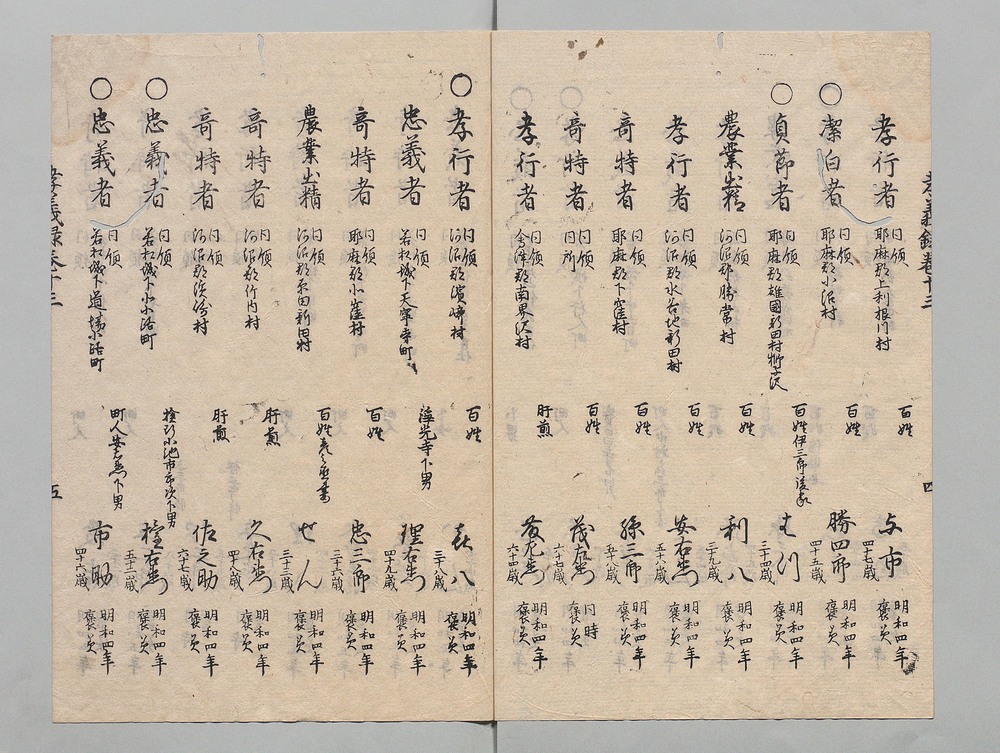 孝義録巻十三
四
孝行者 同領 耶麻郡上利根川村 百姓 与市 四十七歳 明和四年 褒美
○ 潔白者 同領 耶麻郡小沼村 百姓 勝四郎 四十五歳 明和四年 褒美
○ 貞節者 同領 耶麻郡雄国新田村 百姓伊三郎後家 はつ 三十四歳 明和四年 褒美
農業出精 同領 河沼郡勝常村 百姓 利八 三十九歳 明和四年 褒美
孝行者 同領 河沼郡水谷地新田村 百姓 安右衛門 五十八歳 明和四年 褒美
奇特者 同領 耶麻郡下窪村 百姓 孫三郎 五十一歳 明和四年 褒美
奇特者 同領 同所 百姓 茂右衛門 六十七歳 同時 褒美
○ 孝行者 同領 会津郡南界沢村 肝煎 六十四歳 明和四年 褒美
○ 孝行者 同領 河沼郡 村 百姓 喜八 三十八歳 明和四年 褒美
忠義者 同領 若松城下天寧寺町 光寺下男 理右衛門 四十九歳 明和四年 褒美
奇特者 同領 耶麻郡小窪村 百姓 忠三郎 三十六歳 明和四年 褒美
農業出精 同領 河沼郡 田新田村 百姓 妻 せん 三十三歳 明和四年 褒美
奇特者 同領 河沼郡竹内村 肝煎 久右衛門 四十八歳 明和四年 褒美
奇特者 同領 河沼郡 村 肝煎 佐之助 六十七歳 明和四年 褒美
○ 忠義者 同領 若松城下小小路町 検断小池市郎次下男 権右衛門 五十二歳 明和四年 褒美
○ 忠義者 同領 若松城下道場小路町 町人安右衛門下男 市助 四十六歳 明和四年 褒美
孝義録巻十三
五